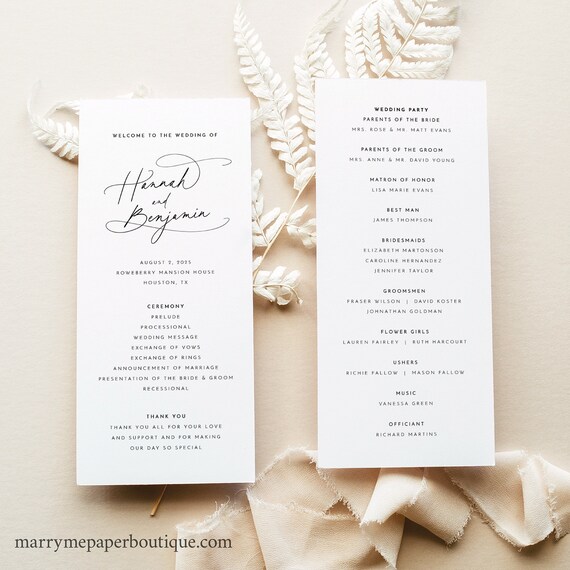 WELCOME TO THE WEDDING OF
Hannah
and
Benjamin
AUGUST 2, 2025
ROWEBERRY MANSION HOUSE
HOUSTON, TX
CEREMONY
PRELUDE
PROCESSIONAL
WEDDING MESSAGE
EXCHANGE OF VOWS
EXCHANGE OF RINGS
ANNOUNCEMENT OF MARRIAGE
PRESENTATION OF THE BRIDE & GROOM
RECESSIONAL
THANK YOU
THANK YOU ALL FOR YOUR LOVE
AND SUPPORT AND FOR MAKING
OUR DAY SO SPECIAL
WEDDING PARTY
PARENTS OF THE BRIDE
MRS. ROSE & MR. MATT EVANS
PARENTS OF THE GROOM
MRS. ANNE & MR. DAVID YOUNG
MATRON OF HONOR
LISA MARIE EVANS
BEST MAN
JAMES THOMPSON
BRIDESMAIDS
ELIZABETH MARTONSON
CAROLINE HERNANDEZ
JENNIFER TAYLOR
GROOMSMEN
FRASER WILSON | DAVID KOSTER
JOHNATHAN GOLDMAN
FLOWER GIRLS
LAUREN FAIRLEY | RUTH HARCOURT
USHERS
RICHIE FALLOW | MASON FALLOW
MUSIC
VANESSA GREEN
OFFICIANT
RICHARD MARTINS
marrymepaperboutique.com